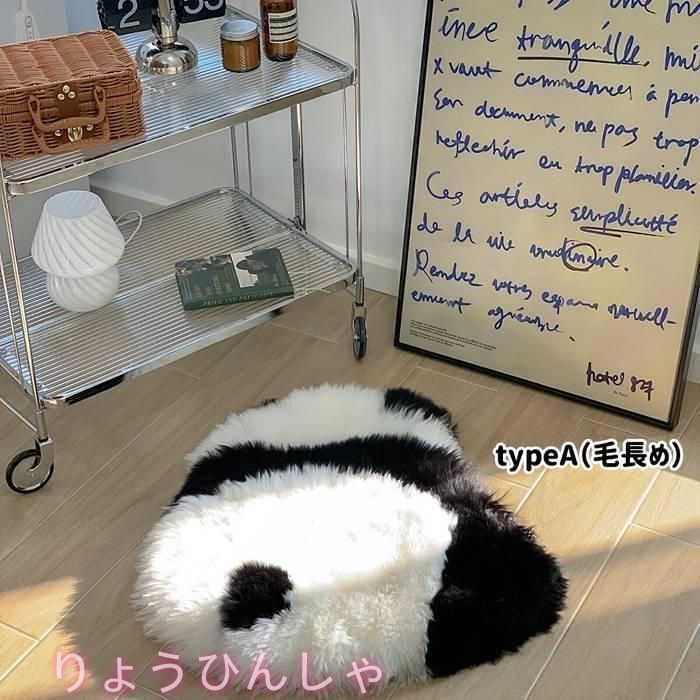 2 53
ince tranquille, mi
x vaut commencer à pen
son document, ne pas trop
reflechir ou trop planifier
Ces articles simplicité
de la vie
Rendez votres espace naturell-
ement agréable.
hotel 827
PRIDE AND PREJUDICE
typeA(毛長め)
りょうひんしゃ